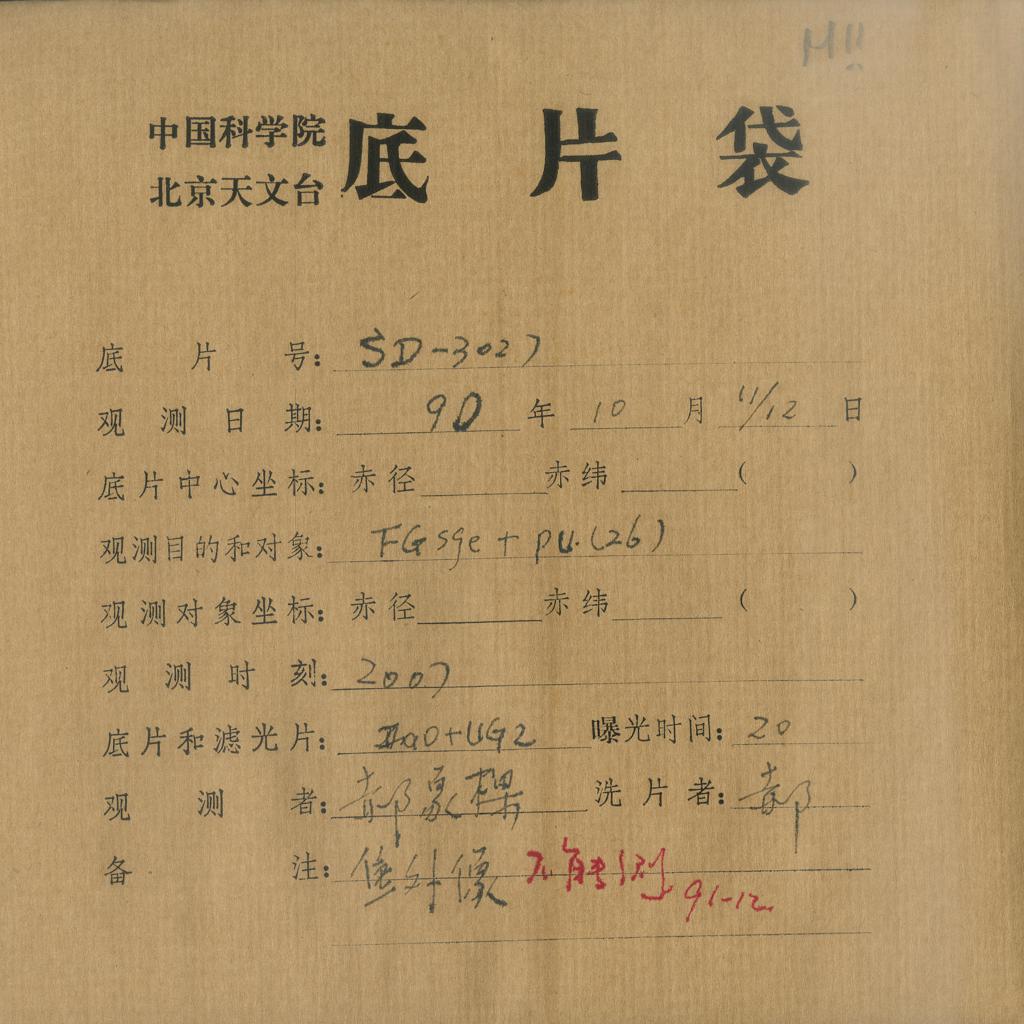 中国科学院
北京天文台
底片袋
底片号: SD-3027
观测日期: 90年10月11/12日
底片中心坐标: 赤径 赤纬 ( )
观测目的和对象: FG sge + pu.(26)
观测对象坐标: 赤径 赤纬 ( )
观测时刻: 2007
底片和滤光片: IIaO+UG2 曝光时间: 20
观测者: 郝象樑 洗片者: 郝
备注: 焦外像 不能测 91-12